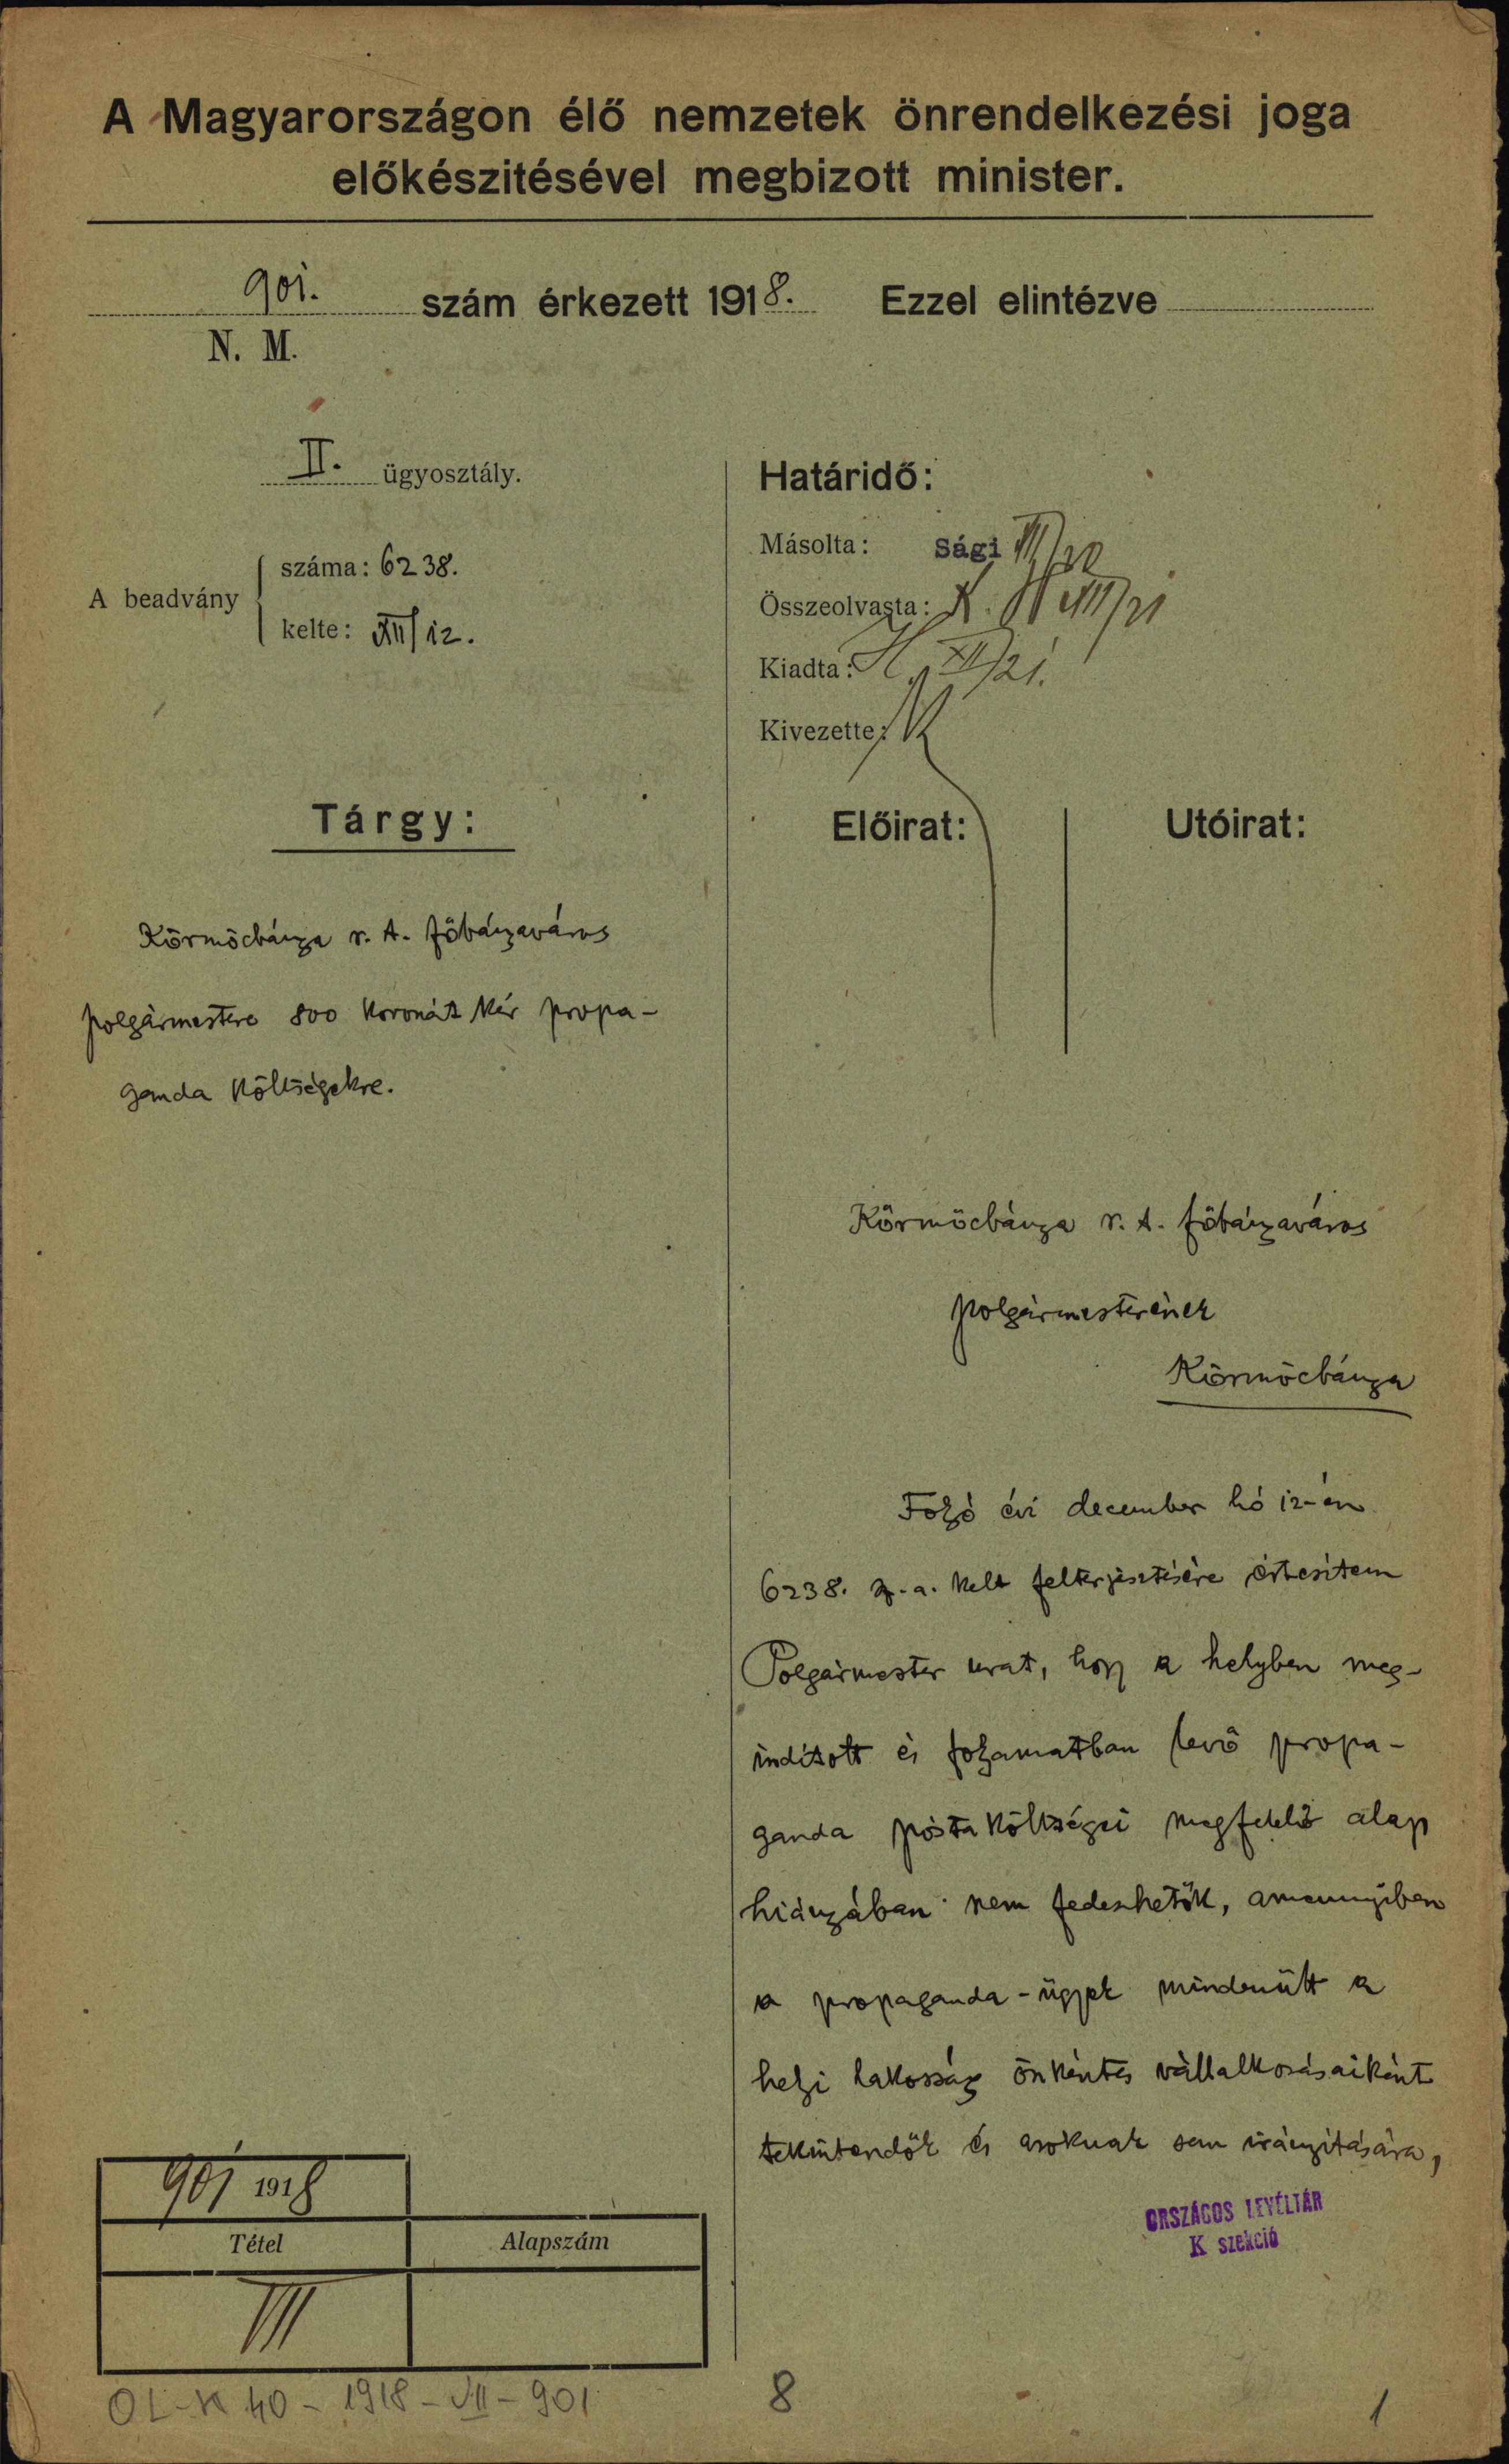 A Magyarországon élő nemzetek önrendelkezési joga
előkészitésével megbizott minister.
901. szám érkezett 1918. Ezzel elintézve
N. M.
II. ügyosztály.
A beadvány
száma: 6238.
kelte: XII/12.
Határidő:
Másolta: Sági XII/20
Összeolvasta: K. XII/21
Kiadta: H. XII/21.
Kivezette:
Tárgy:
Körmöcbánya r. t. főbányaváros
polgármestere 800 koronát kér propa-
ganda költségekre.
Előirat:
Utóirat:
Körmöcbánya r. t. főbányaváros
polgármesterének
Körmöcbánya
Folyó évi december hó 12-én
6238. sz. a. kelt felterjesztésére értesitem
Polgármester urat, hogy a helyben meg-
inditott és folyamatban levő propa-
ganda posta költségei megfelelő alap
hiányában nem fedezhetők, amennyiben
a propaganda-ügyek mindenütt a
helyi lakosság önkéntes vállalkozásaiként
tekintendők és azoknak sem irányitására,
ORSZÁGOS LEVÉLTÁR
K szekció
901 1918
Tétel
Alapszám
VII
OL-K 40-1918-VII-901
8
1